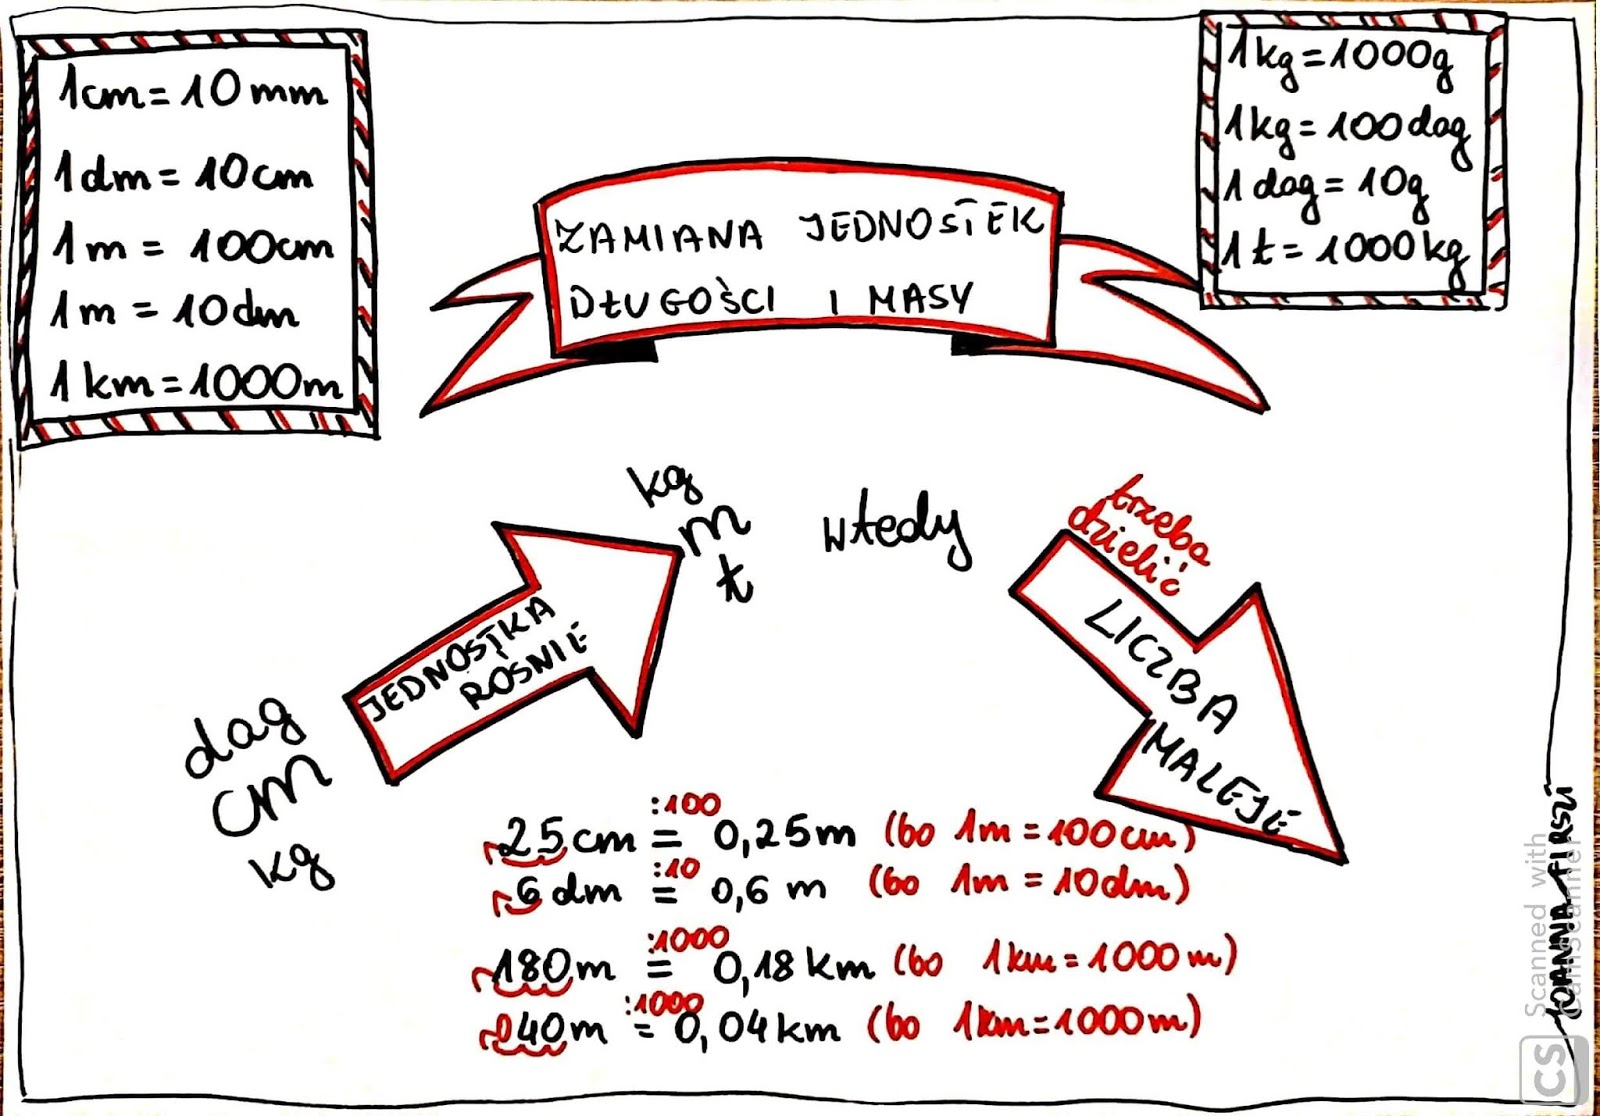 1cm = 10mm
1dm = 10cm
1m = 100cm
1m = 10dm
1km = 1000m
ZAMIANA JEDNOSTEK
DŁUGOŚCI I MASY
1kg = 1000g
1kg = 100dag
1dag = 10g
1t = 1000kg
dag
cm
kg
JEDNOSTKA
ROŚNIE
kg
m
t
wtedy
trzeba
dzielić
LICZBA
MALEJE
:100
25cm = 0,25m (bo 1m = 100cm)
:10
6dm = 0,6m (bo 1m = 10dm)
:1000
180m = 0,18km (bo 1km = 1000m)
:1000
040m = 0,04km (bo 1km = 1000m)
JOANNA FIRSZT
CS Scanned with
CamScanner